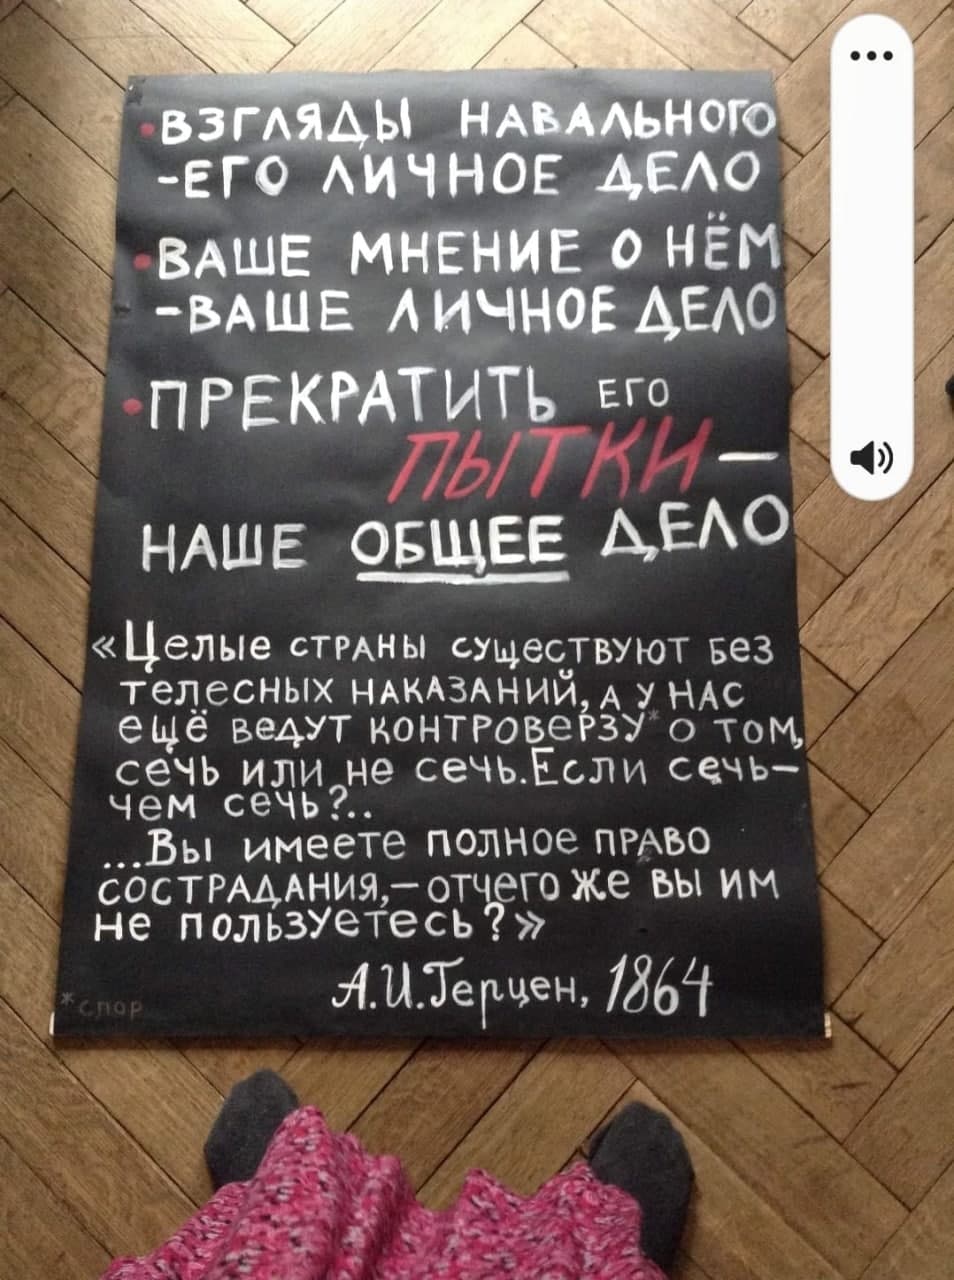 • ВЗГЛЯДЫ НАВАЛЬНОГО
- ЕГО ЛИЧНОЕ ДЕЛО
• ВАШЕ МНЕНИЕ О НЁМ
- ВАШЕ ЛИЧНОЕ ДЕЛО
• ПРЕКРАТИТЬ ЕГО
ПЫТКИ —
НАШЕ ОБЩЕЕ ДЕЛО
«Целые страны существуют без
телесных наказаний, а у нас
ещё ведут контроверзу* о том,
сечь или не сечь. Если сечь —
чем сечь?..
...Вы имеете полное право
сострадания, — отчего же вы им
не пользуетесь?»
А.И.Герцен, 1864
*спор